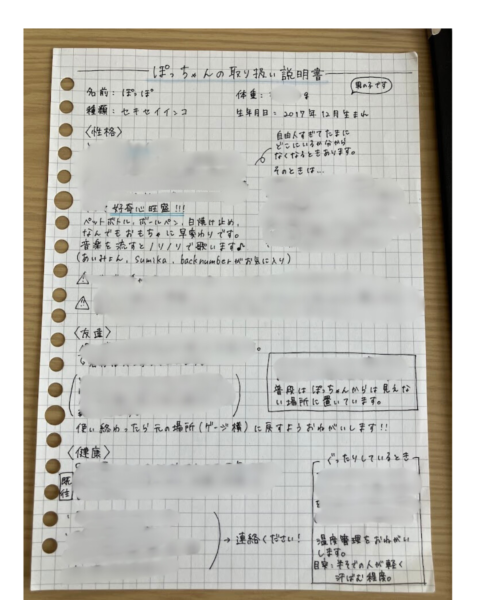 ぽっちゃんの取り扱い説明書
男の子です
名前：ぽっぽ
体重：
g
種類：セキセイインコ
生年月日：2017年12月生まれ
〈性格〉
自由人すぎてたまに
どこにいるか分から
なくなるときあります。
そのときは…
好奇心旺盛!!!
ペットボトル、ボールペン、日焼け止め、
なんでもおもちゃに早変わりです。
音楽を流すとノリノリで歌います♪
(あいみょん、sumika、backnumberがお気に入り)
〈友達〉
普段はぽっちゃんからは見えな
い場所に置いています。
使い終わったら元の場所(ゲージ横)に戻すようおねがいします!!
〈健康〉
ぐったりしているとき
→連絡ください!
温度管理をおねがい
します。
目安：半そでの人が軽く
汗ばむ程度。